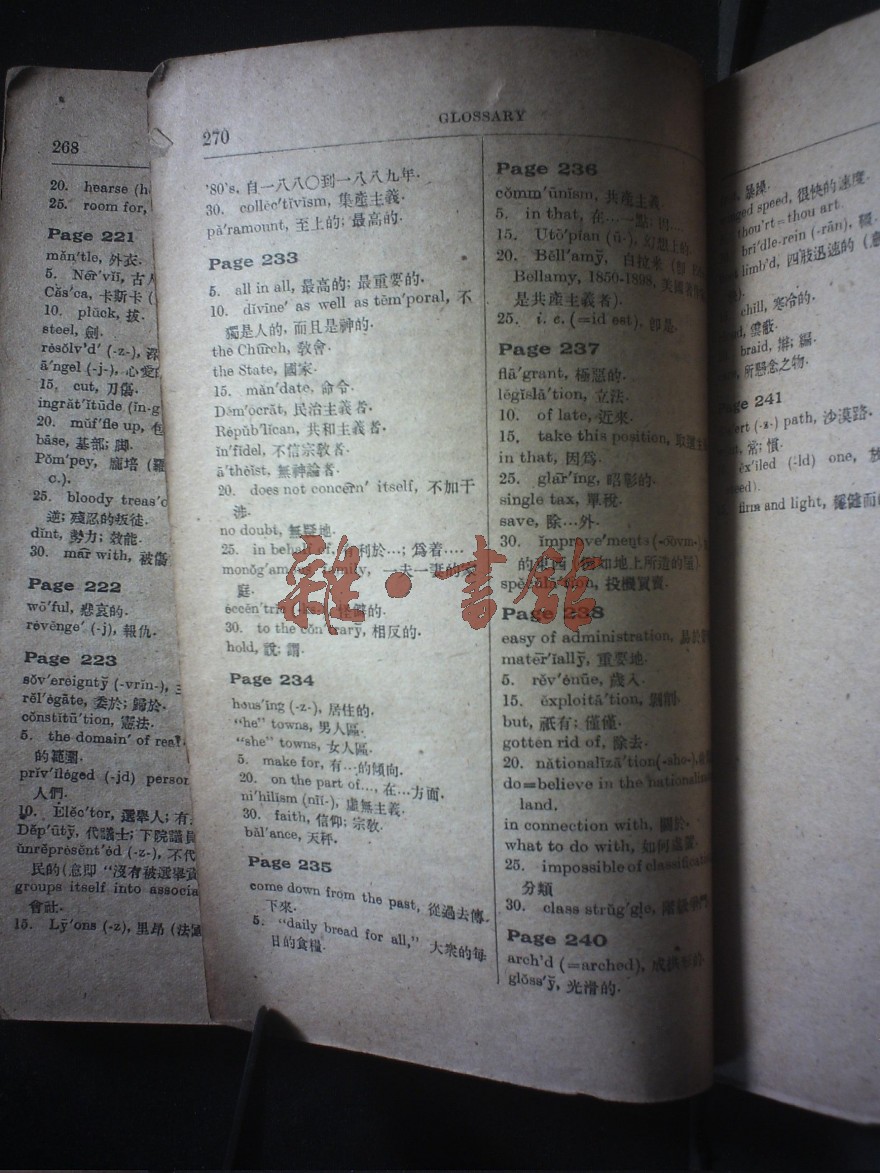 268
20. hearse
25. room for,
Page 221
măn′tle, 外衣.
5. Nẽr′vĭī, 古人
Căs′ca, 卡斯卡
10. plŭck, 拔.
steel, 劍.
rėsŏlv′d′ (-z-),
ā′ngel (-j-), 心愛
15. cut, 刀傷.
ingrăt′ĭtūde
20. mŭf′fle up, 包
bāse, 基部; 脚.
Pŏm′pey, 龐培 (羅
c.).
25. bloody treas′
逆; 殘忍的叛徒.
dĭnt, 勢力; 效能.
30. mär with, 被傷
Page 222
wō′ful, 悲哀的.
rėvĕnge′ (-j), 報仇.
Page 223
sŏv′ereigntў (-vrĭn-),
rĕl′ėgāte, 委於; 歸於.
cŏnstĭtū′tion, 憲法.
5. the domain′ of real
的範圍.
prĭv′ĭlėged (-jd) person
人們.
10. Ėlĕc′tor, 選舉人; 有
Dĕp′ūtў, 代議士; 下院議員
ŭnrĕprėsĕnt′ėd (-z-), 不代
民的 (意即 “沒有被選舉
groups itself into associa
會社.
15. Lȳ′ons (-z), 里昂 (法
270
GLOSSARY
’80’s, 自一八八〇到一八八九年.
30. collĕc′tĭvism, 集產主義.
păr′amount, 至上的; 最高的.
Page 233
5. all in all, 最高的; 最重要的.
10. dĭvīne′ as well as tĕm′poral, 不
獨是人的, 而且是神的.
the Chûrch, 敎會.
the State, 國家.
15. măn′date, 命令.
Dĕm′ocrăt, 民治主義者.
Rėpŭb′lĭcan, 共和主義者.
ĭn′fĭdel, 不信宗敎者.
ā′thėĭst, 無神論者.
20. does not concẽrn′ itself, 不加干
涉.
no doubt, 無疑地.
25. in behalf of, 有利於…; 爲着….
monŏg′amous family, 一夫一妻的家
庭.
eccĕn′trĭc 怪僻的.
30. to the cŏn′trary, 相反的.
hold, 說; 謂.
Page 234
hous′ĭng (-z-), 居住的.
“he” towns, 男人區.
“she” towns, 女人區.
5. make for, 有…的傾向.
20. on the part of…, 在…方面.
nī′hĭlism (nĭī-), 虛無主義.
30. faith, 信仰; 宗敎.
băl′ance, 天秤.
Page 235
come down from the past, 從過去傳
下來.
5. “daily bread for all,” 大衆的每
日的食糧.
Page 236
cŏmm′ūnism, 共產主義.
5. in that, 在…一點; 因….
15. Ūtō′pĭan (ū-), 幻想上的.
20. Bĕll′amў,
Bellamy, 1850-1898, 美國
是共產主義者).
25. i. e. (=id est), 卽是.
Page 237
flā′grant, 極惡的.
lĕgĭslā′tion, 立法.
10. of late, 近來.
15. take this position,
in that, 因爲.
25. glâr′ĭng, 昭彰的.
single tax, 單稅.
save, 除…外.
30. ĭmprove′ments
的東西
spĕcūlā′tion, 投機買賣.
Page 238
easy of administration,
matēr′ĭallў, 重要地.
5. rĕv′ėnūe, 歲入.
15. ĕxploitā′tion, 剝削.
but, 祇有; 僅僅.
gotten rid of, 除去.
20. nătionalĭzā′tion (-sho-),
do=believe in the nationaliza
land.
in connection with, 關於.
what to do with, 如何處置.
25. impossible of classificat
分類
30. class strŭg′gle,
Page 240
arch′d (=arched),
glŏss′ў, 光滑的.
暴躁.
ged speed, 很快的速度.
thou’rt=thou art.
brī′dle-rein (-rān), 韁.
limb’d, 四肢迅速的
chill, 寒冷的.
雲蔽.
braid, 辮; 編.
所懸念之物.
ge 241
ert (-z-) path, 沙漠路.
常; 慣.
ĕx′īled (-ld) one,
firm and light,
雜·書館